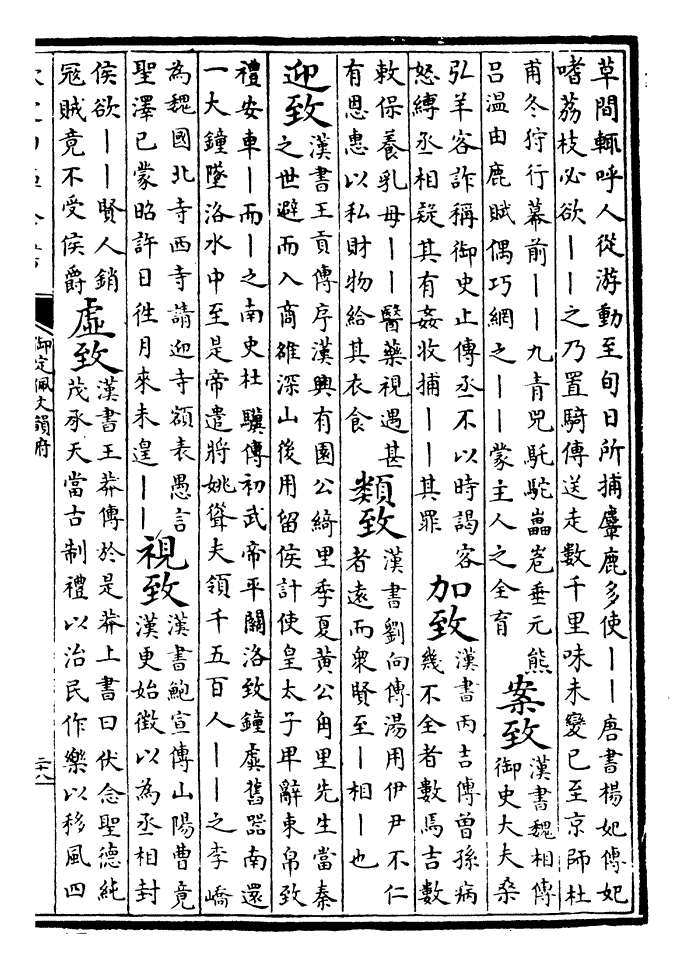 草間輒呼人從游動至旬日所捕麞鹿多使丨丨唐書楊妃傳妃
嗜荔枝必欲丨丨之乃置騎傳送走數千里味未變已至京師杜
甫冬狩行幕前丨丨九青兕馲駝㠥嵓垂元熊
呂温由鹿賦偶巧網之丨丨蒙主人之全育
案致
漢書魏相傳
御史大夫桑
弘羊客詐稱御史止傳丞不以時謁客
怒縳丞相疑其有姦收捕丨丨其罪
加致
漢書丙吉傳曾孫病
幾不全者數焉吉數
敕保養乳母丨丨醫藥視遇甚
有恩惠以私財物給其衣食
類致
漢書劉向傳湯用伊尹不仁
者遠而衆賢至丨相丨也
迎致
漢書王貢傳序漢興有園公綺里季夏黄公角里先生當秦
之世避而入商雒深山後用留侯計使皇太子卑辭束帛致
禮安車丨而丨之南史杜驥傳初武帝平關洛致鐘虡舊器南還
一大鐘墜洛水中至是帝遣將姚聳夫領千五百人丨丨之李嶠
為魏國北寺西寺請迎寺額表愚言
聖澤已蒙昭許日徃月來未遑丨丨
視致
漢書鮑宣傳山陽曹竟
漢更始徵以為丞相封
侯欲丨丨賢人銷
冦賊竟不受侯爵
虛致
漢書王莽傳於是莽上書曰伏念聖德純
茂承天當古制禮以治民作樂以移風四
御定佩文韻府
二十八